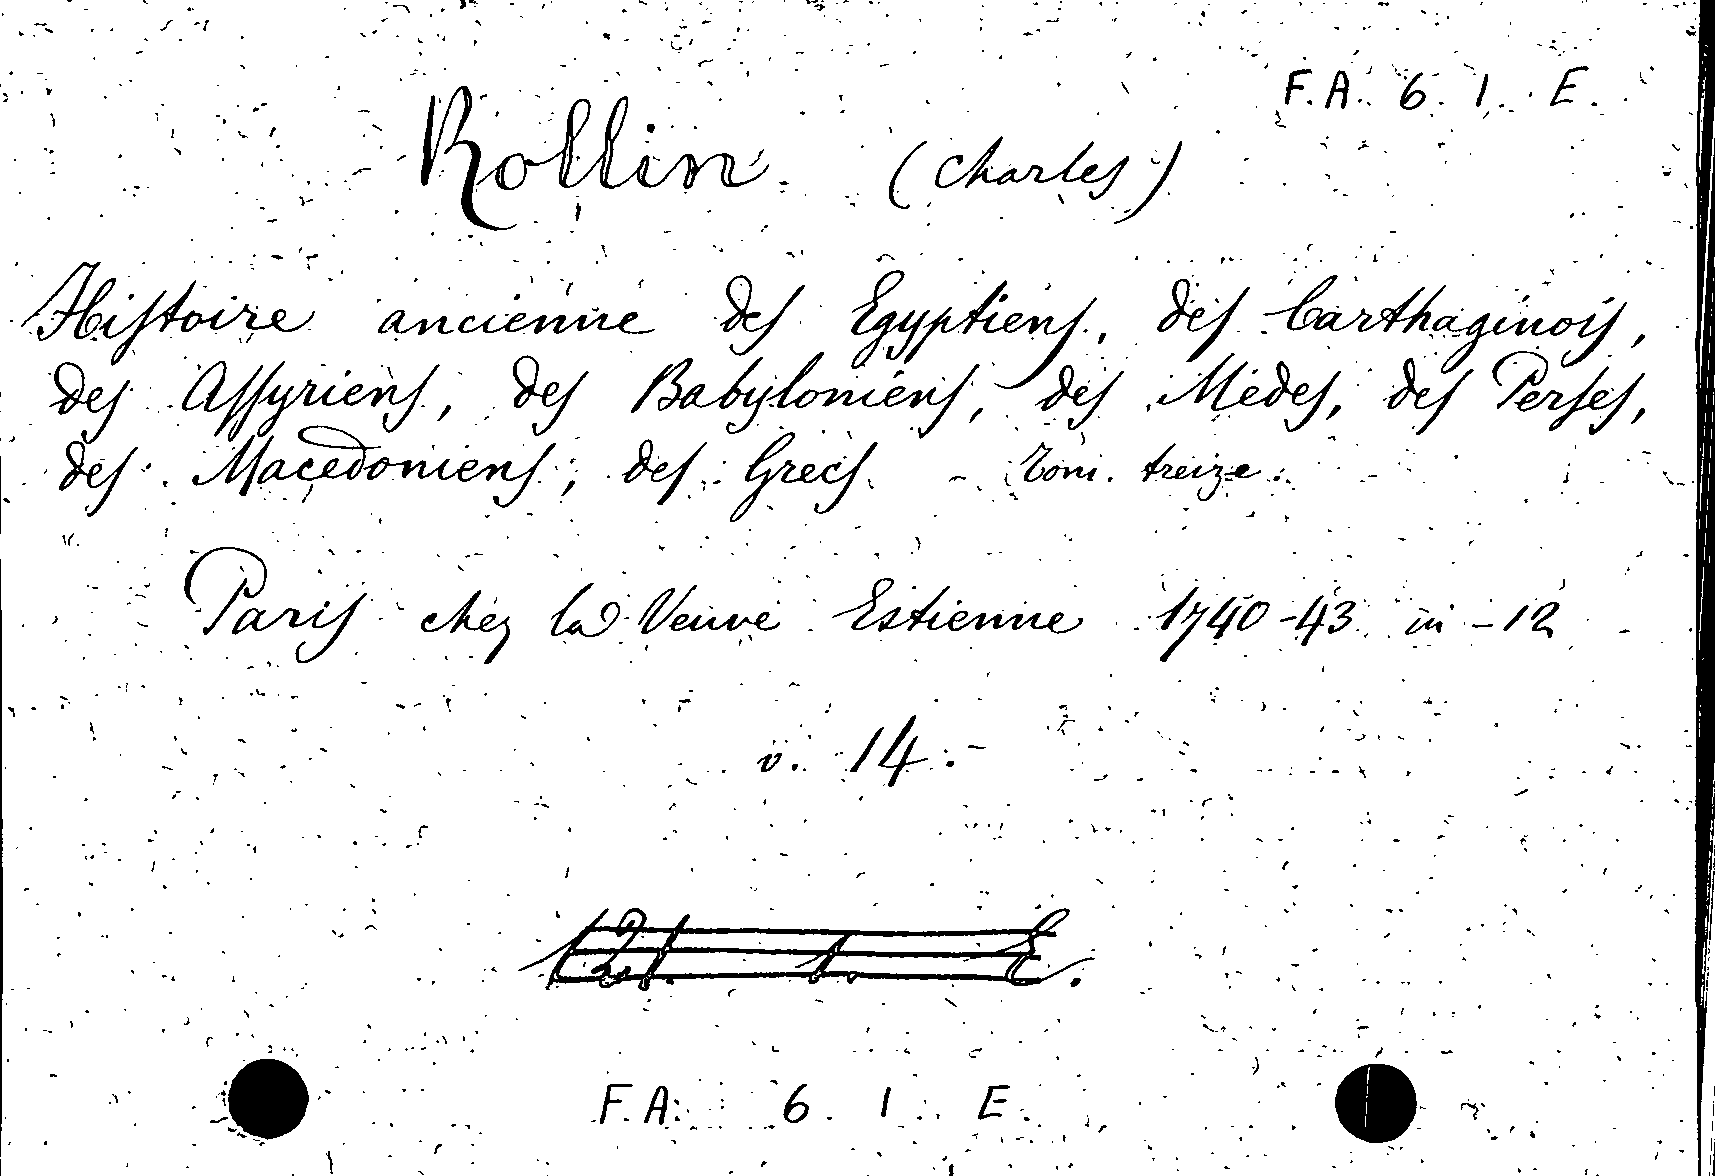 F. A. 6. 1. E.
Rollin. (Charles)
Histoire ancienne des Egyptiens, des Carthaginois,
des Assyriens, des Babyloniens, des Mèdes, des Perses,
des Macedoniens, des Grecs. - Tom. treize.
Paris chez la Veuve Estienne 1740-43 in-12
v. 14.-
121. 1. E.
F. A. 6. 1. E.